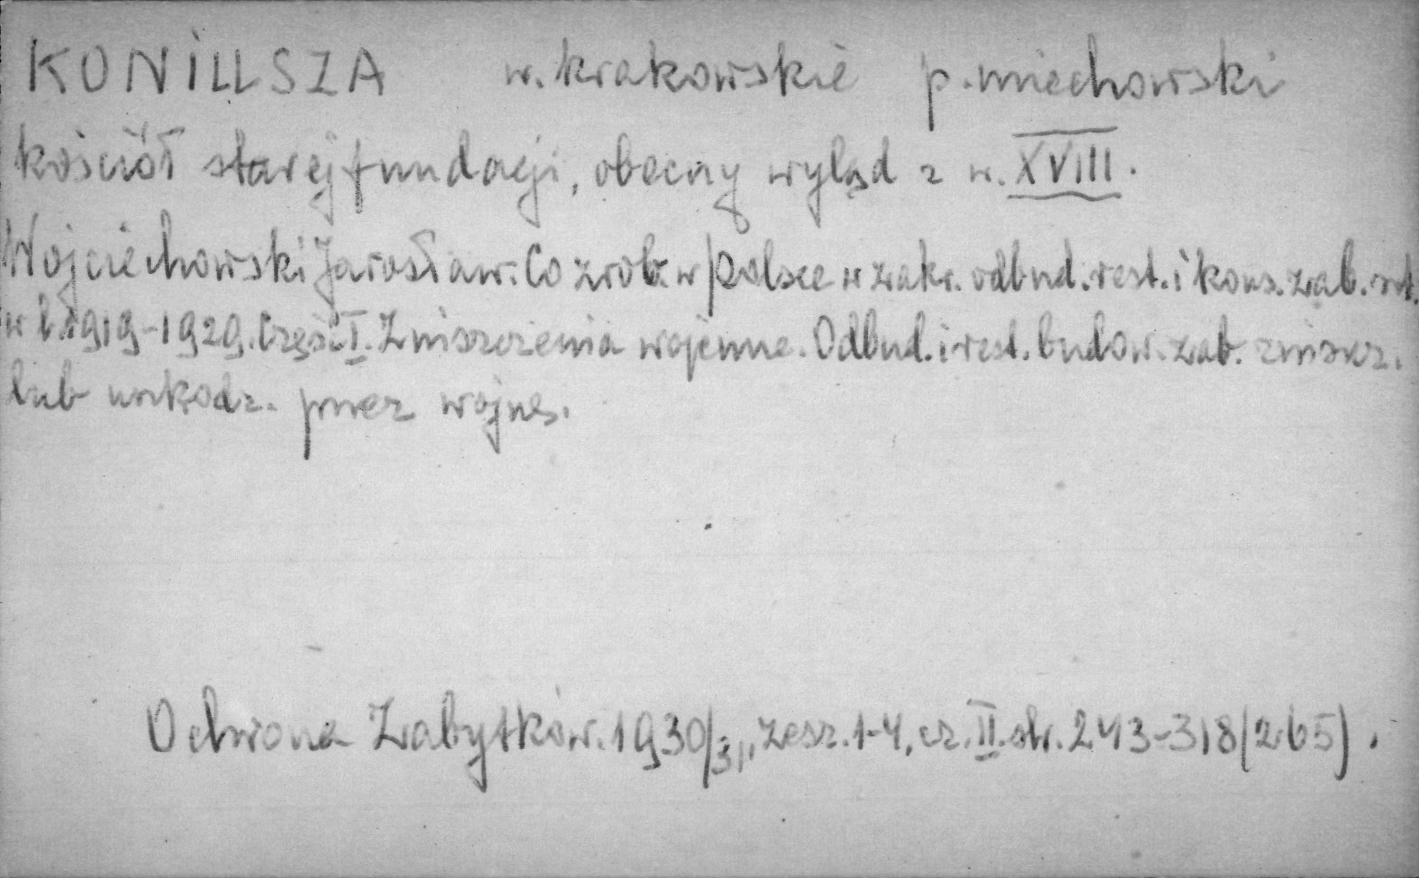 KONIUSZA w. krakowskie p. miechowski
kościół starej fundacji, obecny wygląd z w. XVIII.
Wojciechowski Jarosław: Co zrob. w Polsce w zakr. odbud. rest. i kons. zab. szt.
w l. 1919-1929. Część I. Zniszczenia wojenne. Odbud. i rest. budow. zab. zniszcz.
lub uszkodz. przez wojnę.
Ochrona Zabytków. 1930/31, zesz. 1-4, cz. II. str. 243-318 (265).